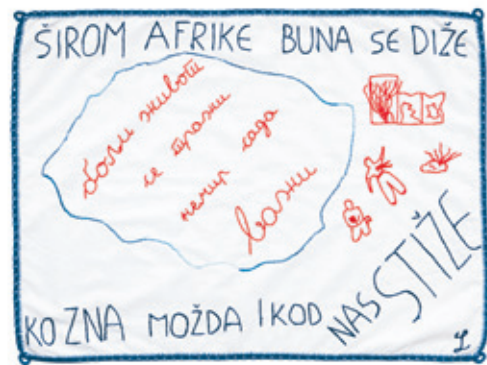 ŠIROM AFRIKE BUNA SE DIŽE
бољи живот
се тражи
немир сада
важи
KO ZNA MOŽDA I KOD NAS STIŽE